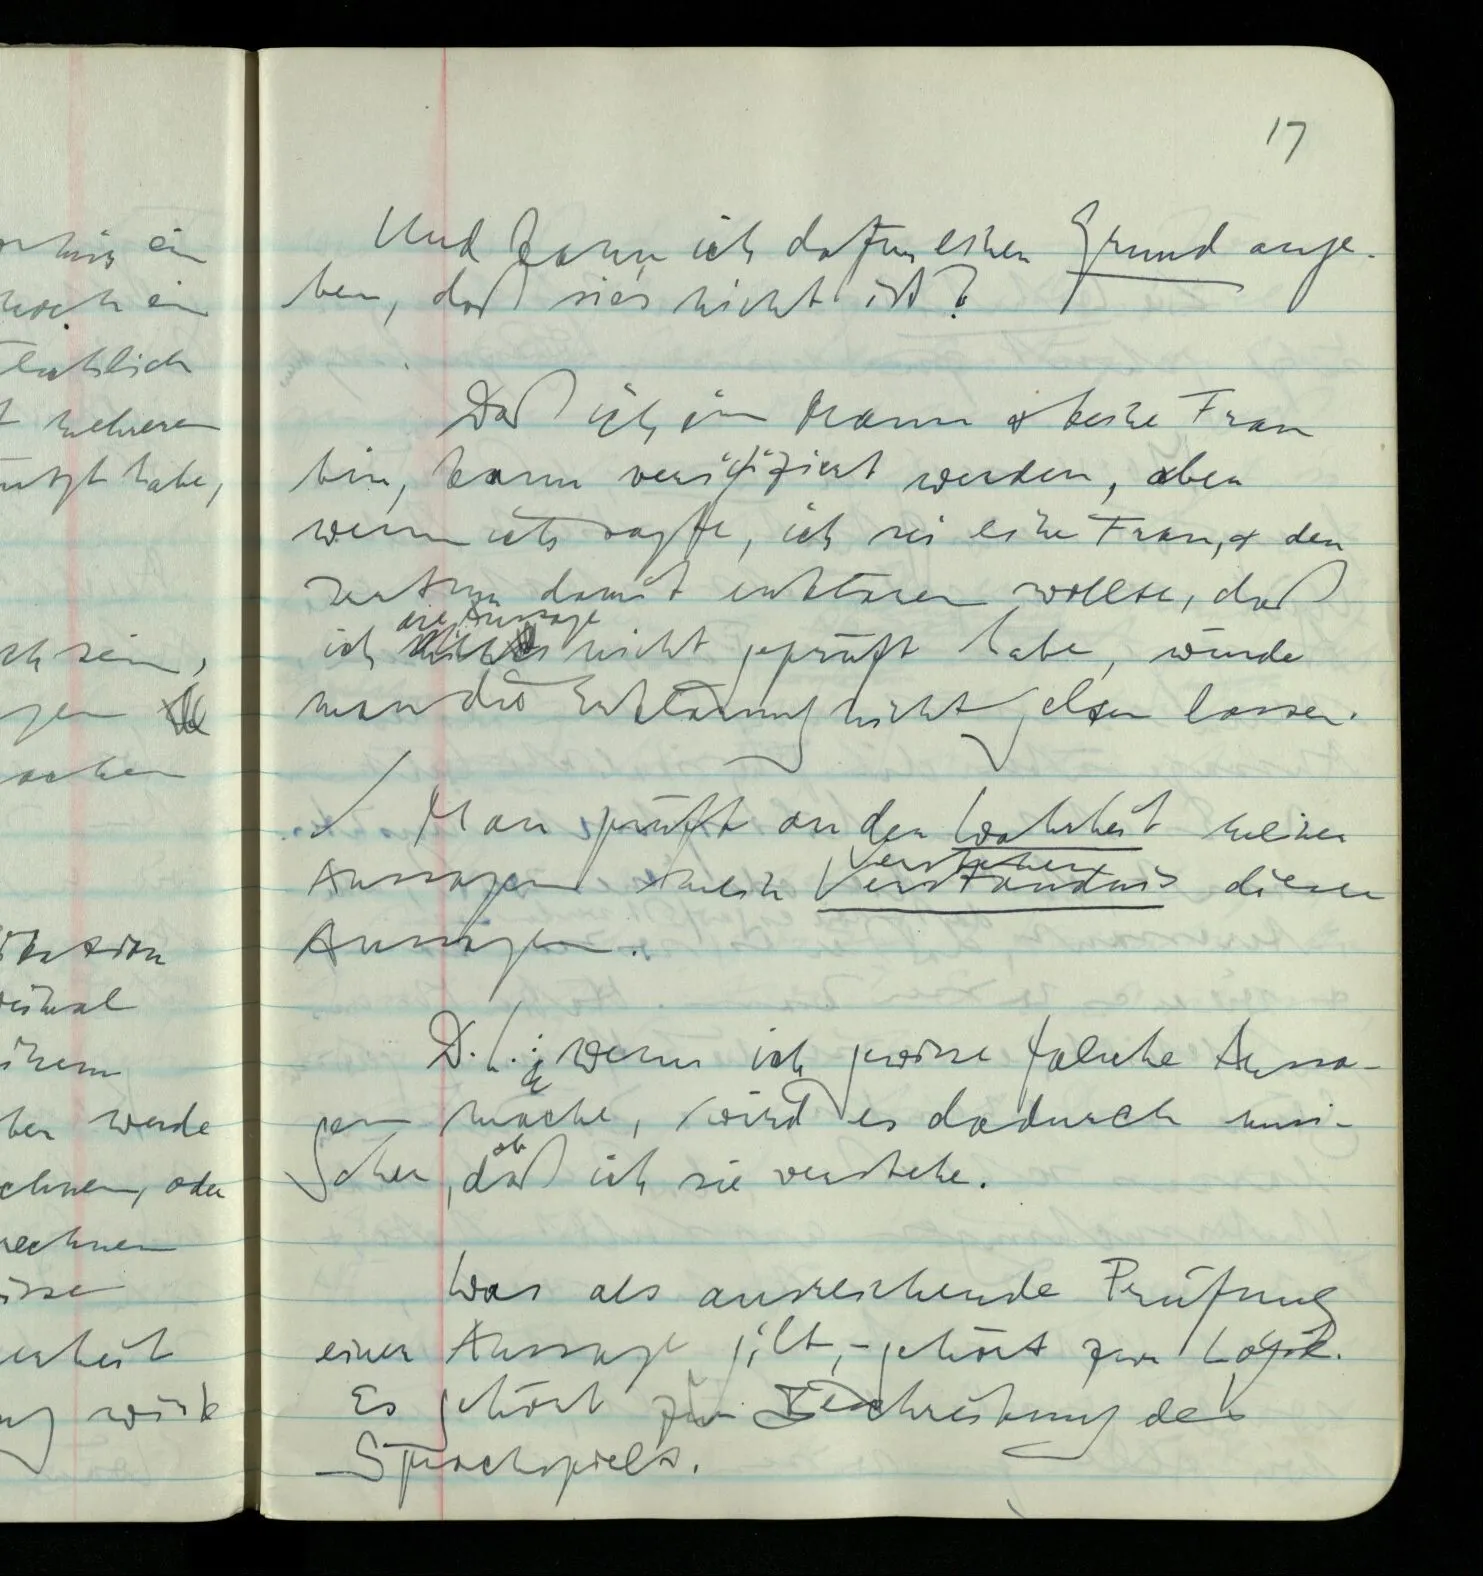 17
Und kann ich dafür einen Grund ange-
ben, daß sie's nicht ist?
Daß ich ein Mann & keine Frau
bin, kann verifiziert werden, aber
wenn ich sagte, ich sei eine Frau, & den
Irrtum damit erklären wollte, daß
ich die Aussage nicht geprüft habe, würde
man die Erklärung nicht gelten lassen.
/ Man prüft an der Wahrheit meiner
Aussagen mein Verständnis dieser
Verstehen
Aussagen.
D.h.: wenn ich gewisse falsche Aussa-
gen mache, wird es dadurch unsi-
cher, ob daß ich sie verstehe.
Was als ausreichende Prüfung
einer Aussage gilt, – gehört zur Logik.
Es gehört zur Beschreibung des
Sprachspiels.
ein
noch ein
mehreren
habe,
sein,
werde
rechnen, oder
rechnen